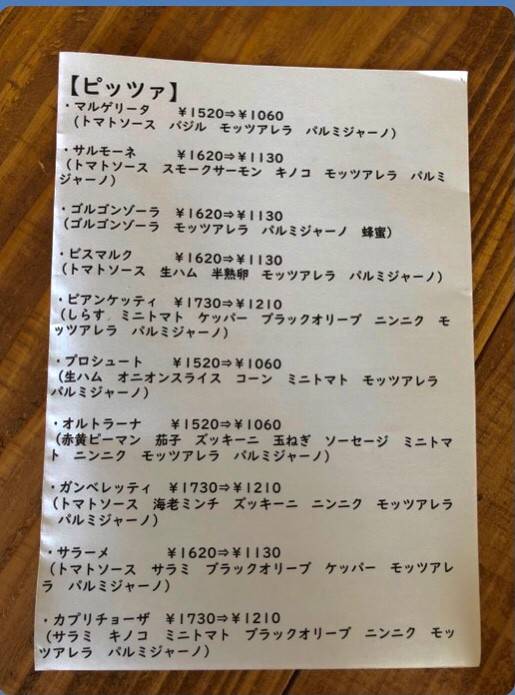 【ピッツァ】
・マルゲリータ ¥1520⇒¥1060
(トマトソース バジル モッツアレラ パルミジャーノ)
・サルモーネ ¥1620⇒¥1130
(トマトソース スモークサーモン キノコ モッツアレラ パルミ
ジャーノ)
・ゴルゴンゾーラ ¥1620⇒¥1130
(ゴルゴンゾーラ モッツアレラ パルミジャーノ 蜂蜜)
・ビスマルク ¥1620⇒¥1130
(トマトソース 生ハム 半熟卵 モッツアレラ パルミジャーノ)
・ビアンケッティ ¥1730⇒¥1210
(しらす ミニトマト ケッパー ブラックオリーブ ニンニク モ
ッツアレラ パルミジャーノ)
・プロシュート ¥1520⇒¥1060
(生ハム オニオンスライス コーン ミニトマト モッツアレラ
パルミジャーノ)
・オルトラーナ ¥1520⇒¥1060
(赤黄ピーマン 茄子 ズッキーニ 玉ねぎ ソーセージ ミニトマ
ト ニンニク モッツアレラ パルミジャーノ)
・ガンベレッティ ¥1730⇒¥1210
(トマトソース 海老ミンチ ズッキーニ ニンニク モッツアレラ
パルミジャーノ)
・サラーメ ¥1620⇒¥1130
(トマトソース サラミ ブラックオリーブ ケッパー モッツアレ
ラ パルミジャーノ)
・カプリチョーザ ¥1730⇒¥1210
(サラミ キノコ ミニトマト ブラックオリーブ ニンニク モッ
ツアレラ パルミジャーノ)